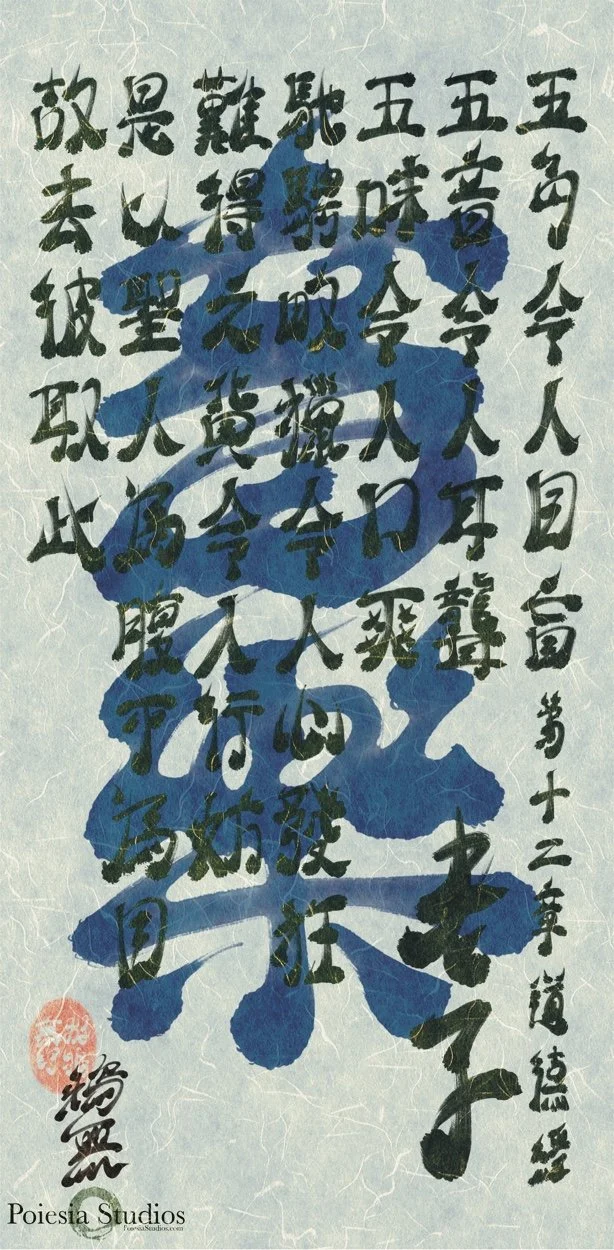 五色令人目盲
第十二章 道德經
五音令人耳聾
老子
五味令人口爽
馳騁畋獵令人心發狂
難得之貨令人行妨
是以聖人為腹不為目
故去彼取此
Poiesia Studios
PoiesiaStudios.com